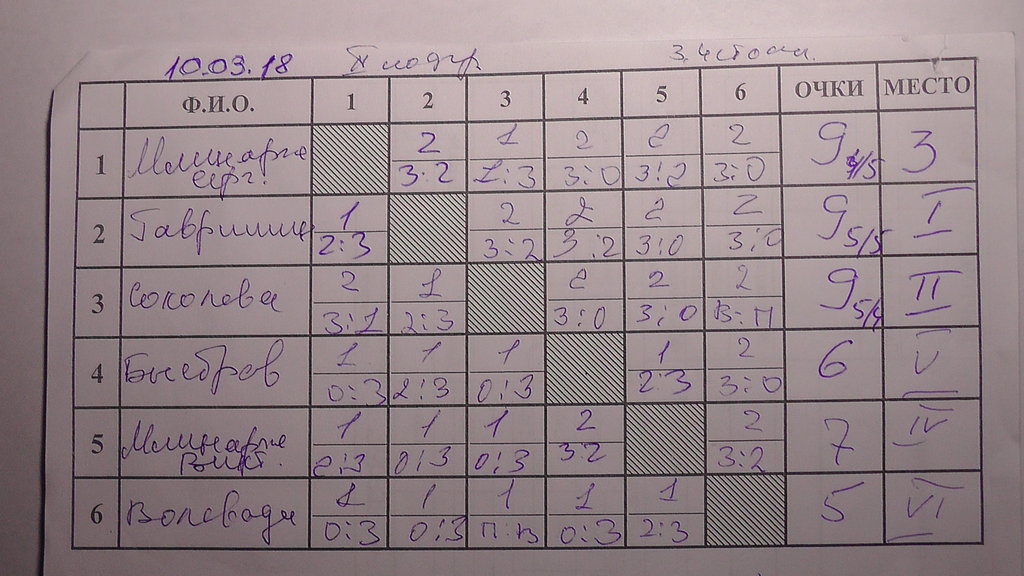 10.03.18 II 3,4 столи.
Ф.И.О. 1 2 3 4 5 6 ОЧКИ МЕСТО
2 1 2 2 2
1 Млинарж 9 3
серг. 3:2 1:3 3:0 3:2 3:0
1 2 2 2 2
2 Гавришиц 9 5/5 I
2:3 3:2 3:2 3:0 3:0
2 1 2 2 2
3 Соколова 9 5/4 II
3:1 2:3 3:0 3:0 В:П
1 1 1 1 2
4 Быстров 6 V
0:3 2:3 0:3 2:3 3:0
1 1 1 2 2
5 Млинарж 7 IV
Викт. 2:3 0:3 0:3 3:2 3:2
1 1 1 1 1
6 5 VI
0:3 0:3 П:В 0:3 2:3